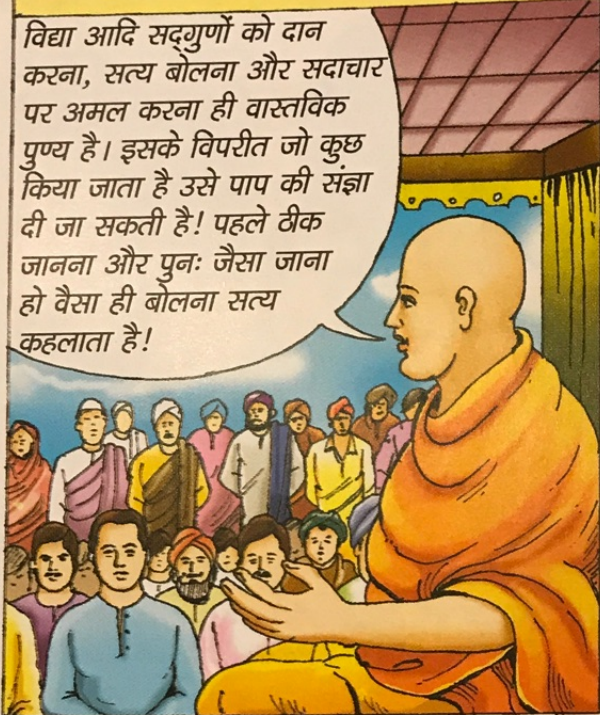 विद्या आदि सद्गुणों को दान
करना, सत्य बोलना और सदाचार
पर अमल करना ही वास्तविक
पुण्य है। इसके विपरीत जो कुछ
किया जाता है उसे पाप की संज्ञा
दी जा सकती है! पहले ठीक
जानना और पुनः जैसा जाना
हो वैसा ही बोलना सत्य
कहलाता है!